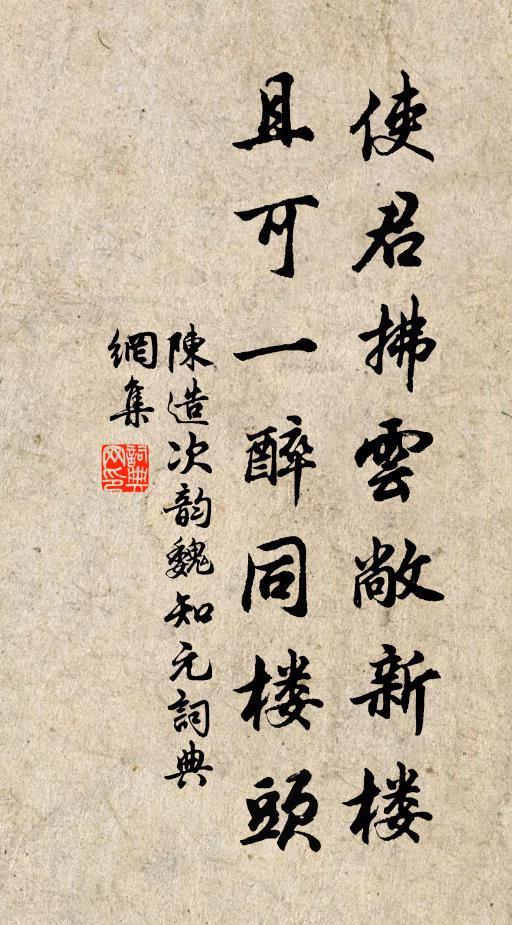 使君拂雲敞新楼
且可一醉同楼頭
陳造次韵魏知元詞典
網集
詞典
网印